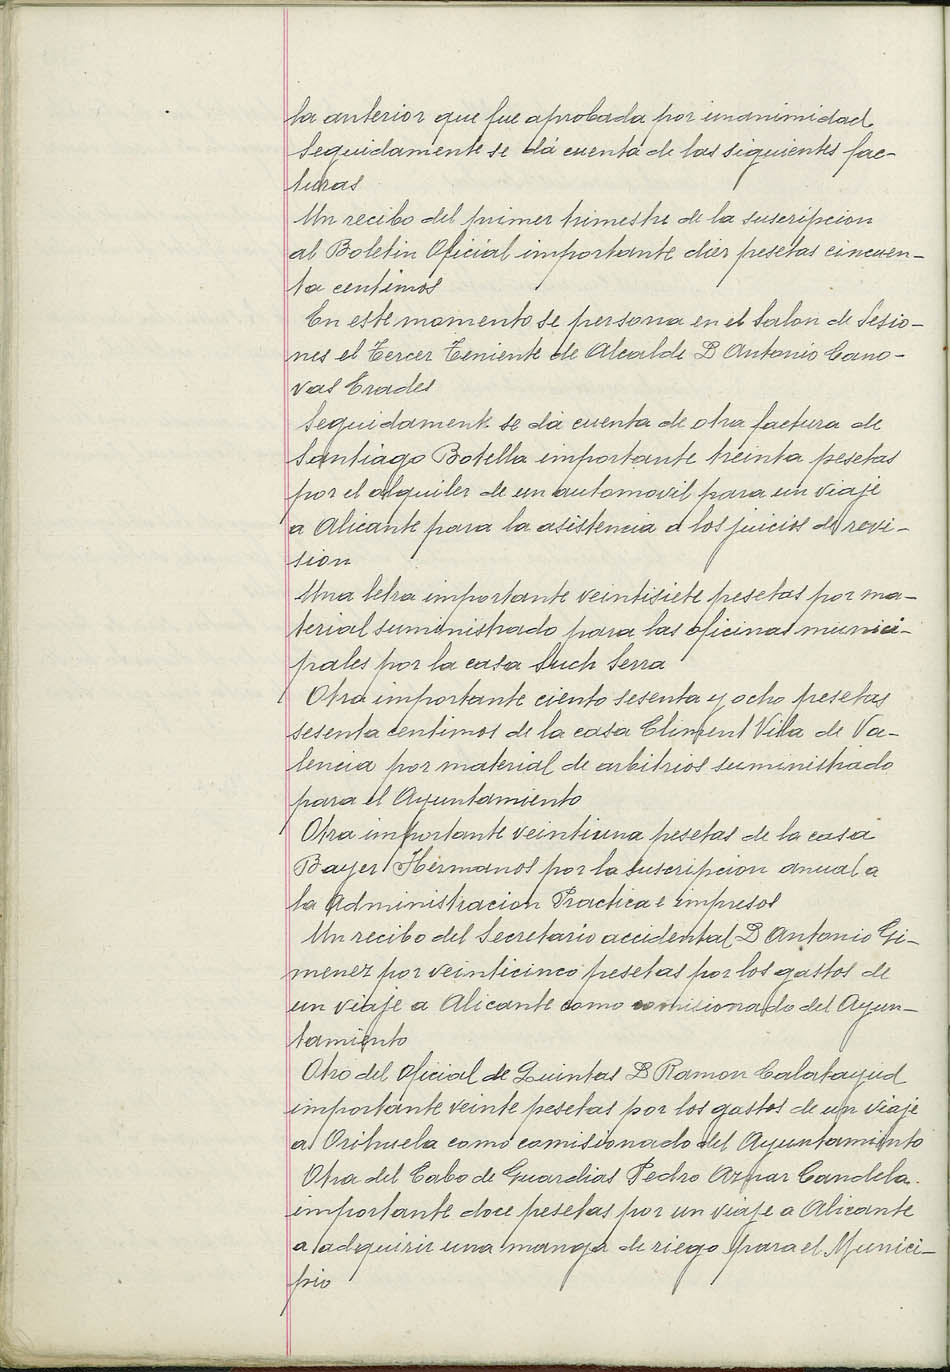 la anterior que fue aprobada por unanimidad
Seguidamente se dá cuenta de las siguientes fac-
turas
Un recibo del primer trimestre de la suscripcion
al Boletin Oficial importante diez pesetas cincuen-
ta centimos
En este momento se persona en el Salon de Sesio-
nes el Tercer Teniente de Alcalde D Antonio Cano-
vas Erades
Seguidamente se dá cuenta de otra factura de
Santiago Botella importante treinta pesetas
por el alquiler de un automovil para un viaje
a Alicante para la asistencia a los juicios de revi-
sion
Una letra importante veintisiete pesetas por ma-
terial suministrado para las oficinas munici-
pales por la casa Such Serra
Otra importante ciento sesenta y ocho pesetas
sesenta centimos de la casa Climent Vila de Va-
lencia por material de arbitrios suministrado
para el Ayuntamiento
Otra importante veintiuna pesetas de la casa
Bayer Hermanos por la suscripcion anual a
la Administracion Practica e impresos
Un recibo del Secretario accidental D Antonio Gi-
menez por veinticinco pesetas por los gastos de
un viaje a Alicante como comisionado del Ayun-
tamiento
Otro del Oficial de Quintas D Ramon Calatayud
importante veinte pesetas por los gastos de un viaje
a Orihuela como comisionado del Ayuntamiento
Otra del Cabo de Guardias Pedro Aznar Candela.
importante doce pesetas por un viaje a Alicante
a adquirir una manga de riego para el Munici-
pio